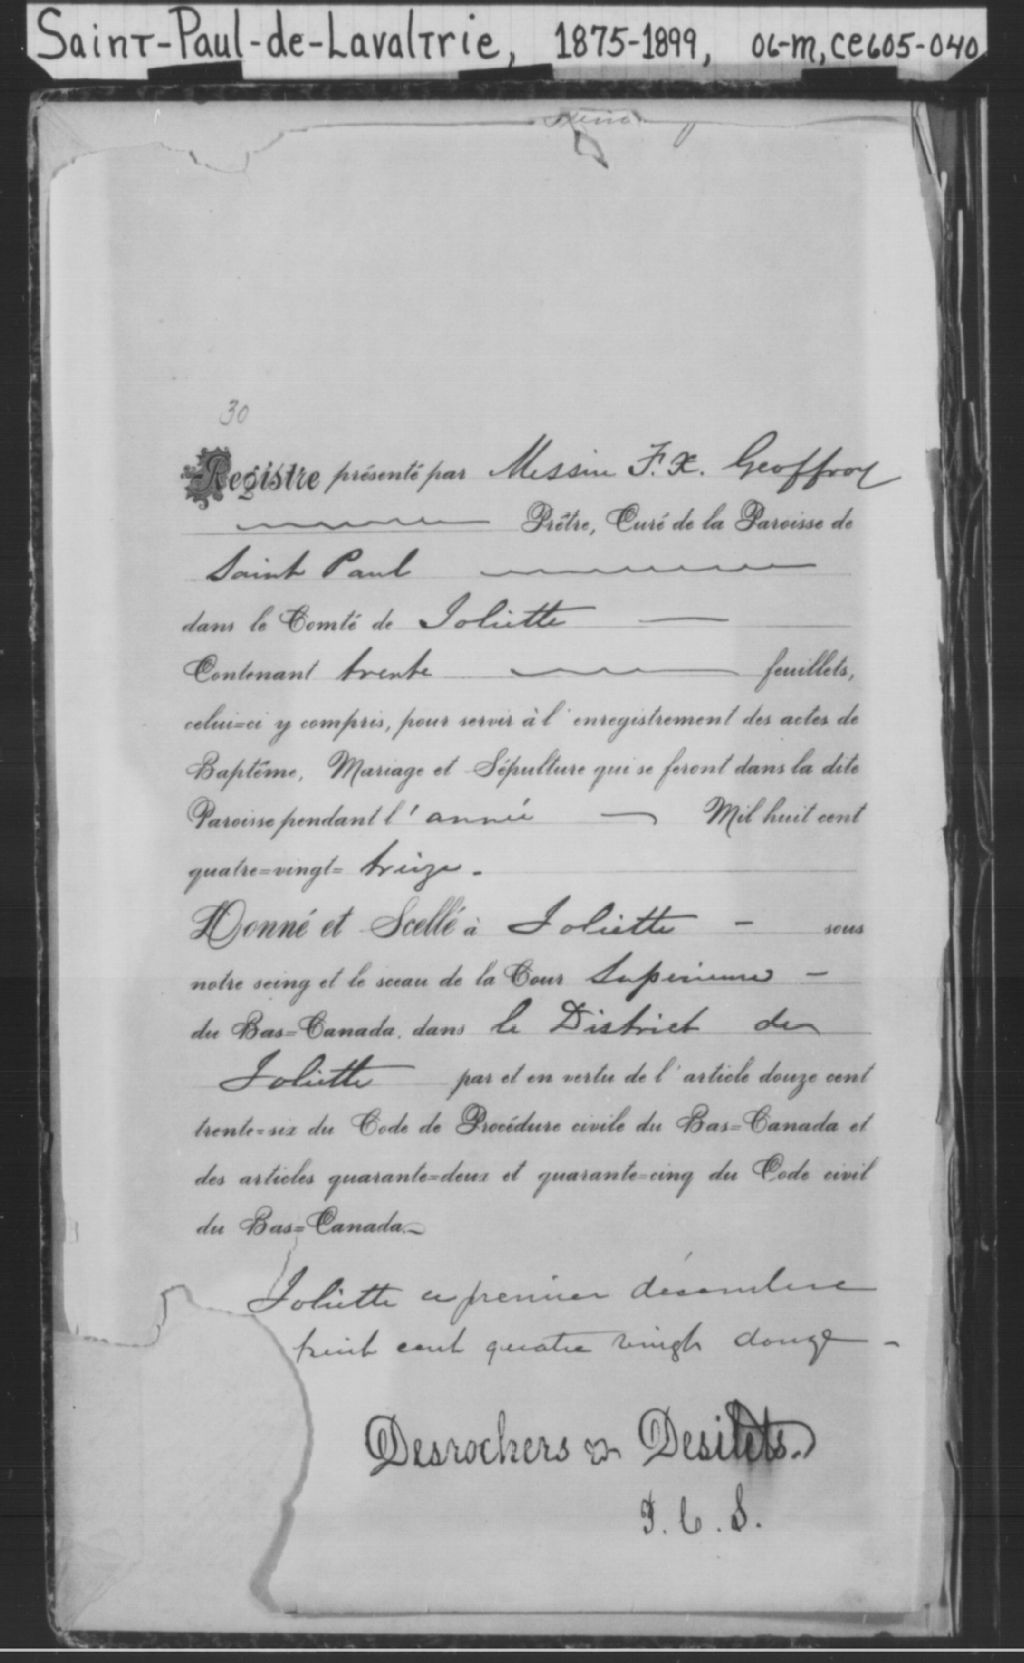 Saint-Paul-de-Lavaltrie, 1875-1899, 06-M, CE605-040
30
Registre présenté par Messire F. X. Geoffroy
Prêtre, Curé de la Paroisse de
Saint Paul
dans le Comté de Joliette
Contenant trente feuillets,
celui=ci y compris, pour servir à l'enregistrement des actes de
Baptême, Mariage et Sépulture qui se feront dans la dite
Paroisse pendant l'année Mil huit cent
quatre=vingt= treize.
Donné et Scellé à Joliette - sous
notre seing et le sceau de la Cour Superieure -
du Bas=Canada, dans le District de
Joliette par et en vertu de l'article douze cent
trente=six du Code de Procédure civile du Bas=Canada et
des articles quarante=deux et quarante=cinq du Code civil
du Bas=Canada.
Joliette ce premier décembre
huit cent quatre vingt douze -
Desrochers & Desilets
P. C. S.